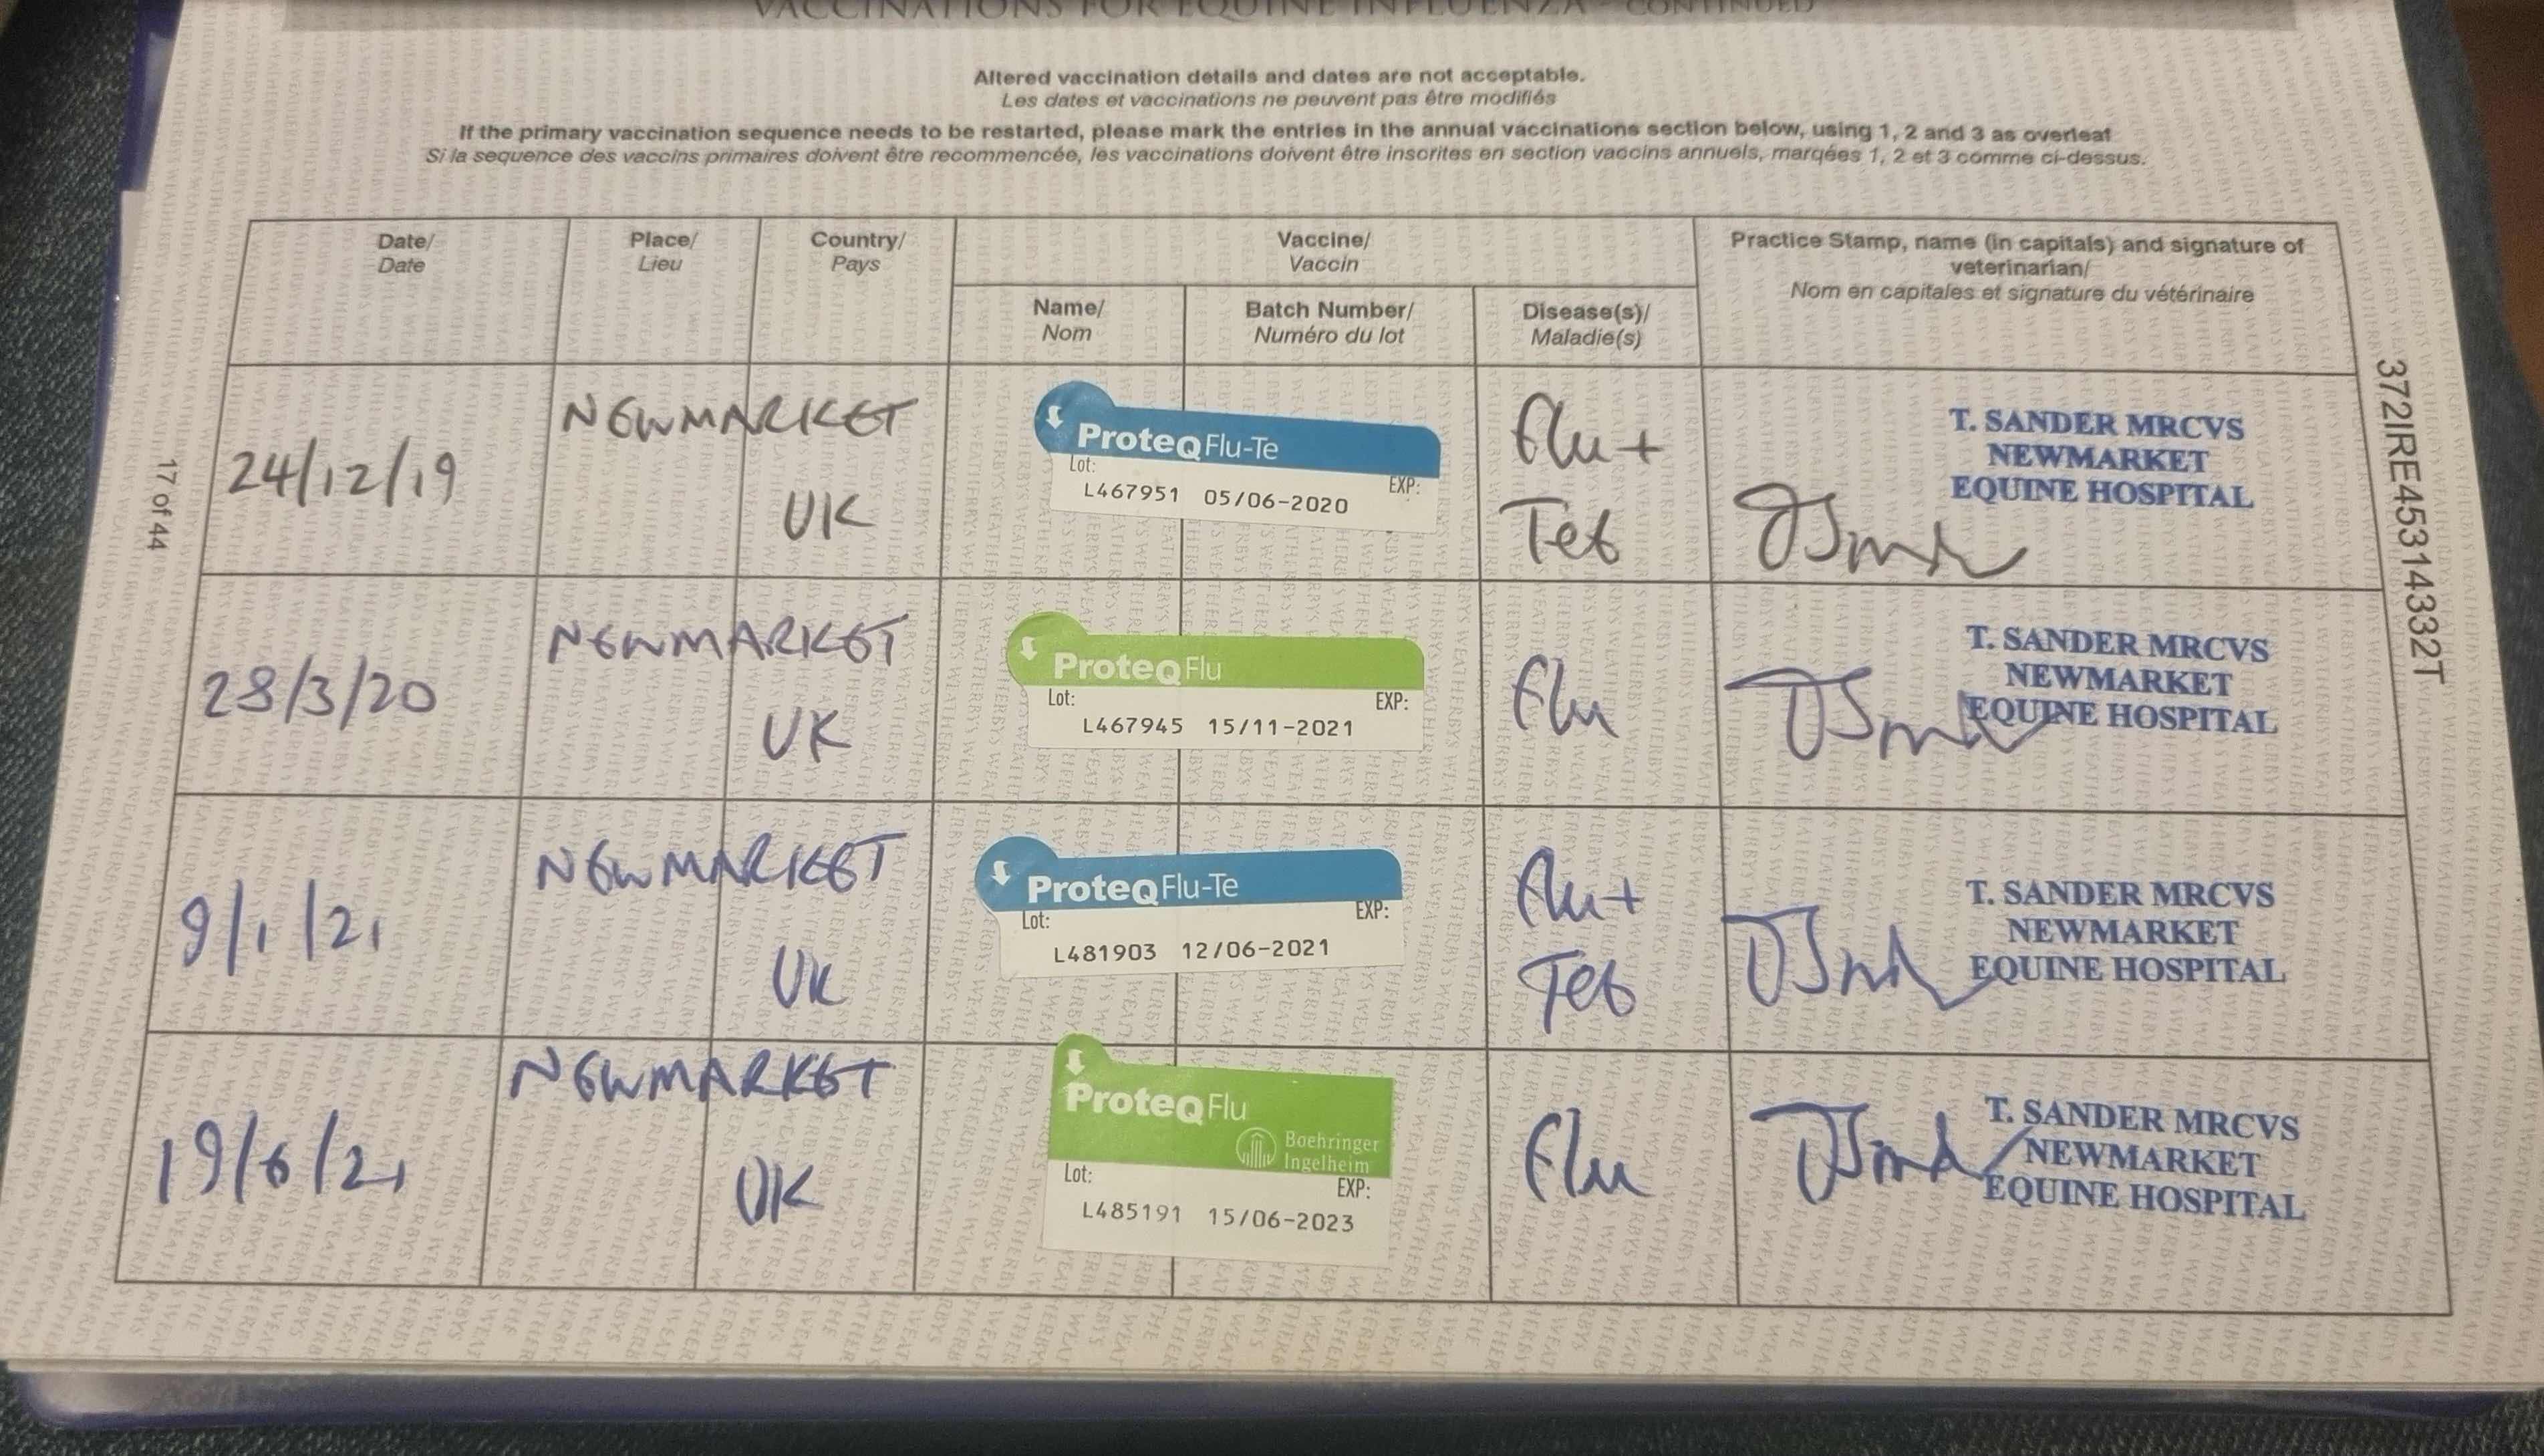 VACCINATIONS FOR EQUINE INFLUENZA - CONTINUED
Altered vaccination details and dates are not acceptable.
Les dates et vaccinations ne peuvent pas être modifiés
If the primary vaccination sequence needs to be restarted, please mark the entries in the annual vaccinations section below, using 1, 2 and 3 as overleaf
Si la sequence des vaccins primaires doivent être recommencée, les vaccinations doivent être inscrites en section vaccins annuels, marqées 1, 2 et 3 comme ci-dessus.
Date/
Date
Place/
Lieu
Country/
Pays
Vaccine/
Vaccin
Name/
Nom
Batch Number/
Numéro du lot
Disease(s)/
Maladie(s)
Practice Stamp, name (in capitals) and signature of
veterinarian/
Nom en capitales et signature du vétérinaire
24/12/19
NEWMARKET
UK
ProteqFlu-Te
Lot: EXP:
L467951 05/06-2020
Flu +
Tet
T. SANDER MRCVS
NEWMARKET
EQUINE HOSPITAL
28/3/20
NEWMARKET
UK
ProteqFlu
Lot: EXP:
L467945 15/11-2021
Flu
T. SANDER MRCVS
NEWMARKET
EQUINE HOSPITAL
9/1/21
NEWMARKET
UK
ProteqFlu-Te
Lot: EXP:
L481903 12/06-2021
Flu +
Tet
T. SANDER MRCVS
NEWMARKET
EQUINE HOSPITAL
19/6/21
NEWMARKET
UK
ProteqFlu
Boehringer
Ingelheim
Lot: EXP:
L485191 15/06-2023
Flu
T. SANDER MRCVS
NEWMARKET
EQUINE HOSPITAL
17 of 44
372IRE45314332T